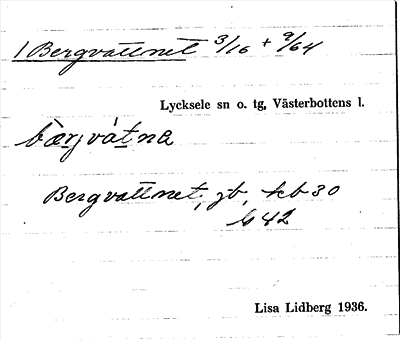 1 Bergvattnet 3/16 + 9/64
Lycksele sn o. tg, Västerbottens l.
bærjvátna
Bergvattnet, jb, kb 30
b 42
Lisa Lidberg 1936.